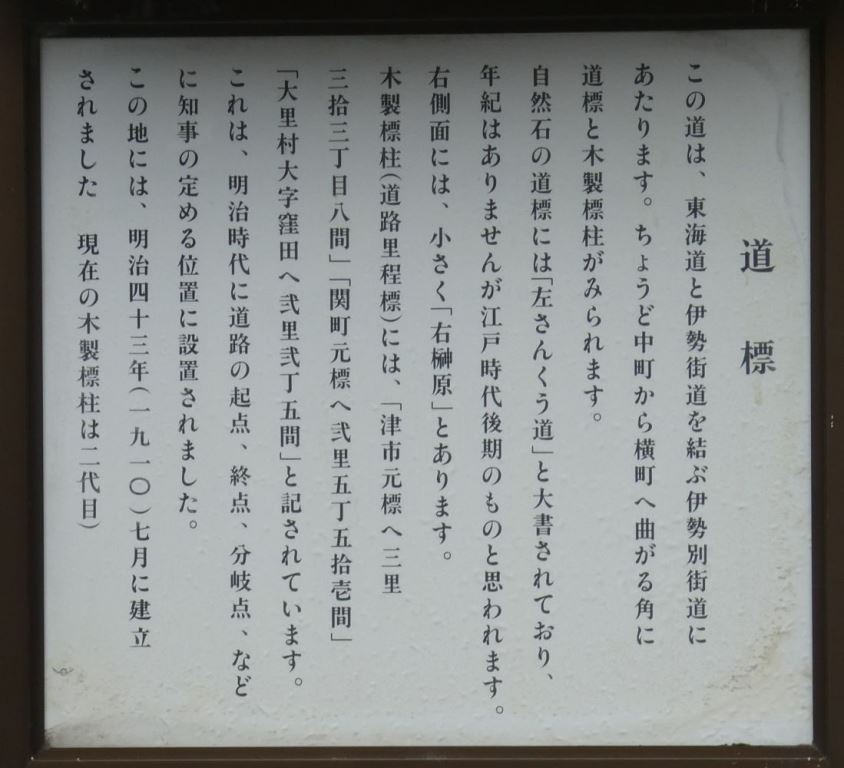 道標
この道は、東海道と伊勢街道を結ぶ伊勢別街道に
あたります。ちょうど中町から横町へ曲がる角に
道標と木製標柱がみられます。
自然石の道標には「左さんくう道」と大書されており、
年紀はありませんが江戸時代後期のものと思われます。
右側面には、小さく「右榊原」とあります。
木製標柱(道路里程標)には、「津市元標へ三里
三拾三丁目八間」「関町元標へ弐里五丁五拾壱間」
「大里村大字窪田へ弐里弐丁五間」と記されています。
これは、明治時代に道路の起点、終点、分岐点、など
に知事の定める位置に設置されました。
この地には、明治四十三年(一九一〇)七月に建立
されました 現在の木製標柱は二代目)